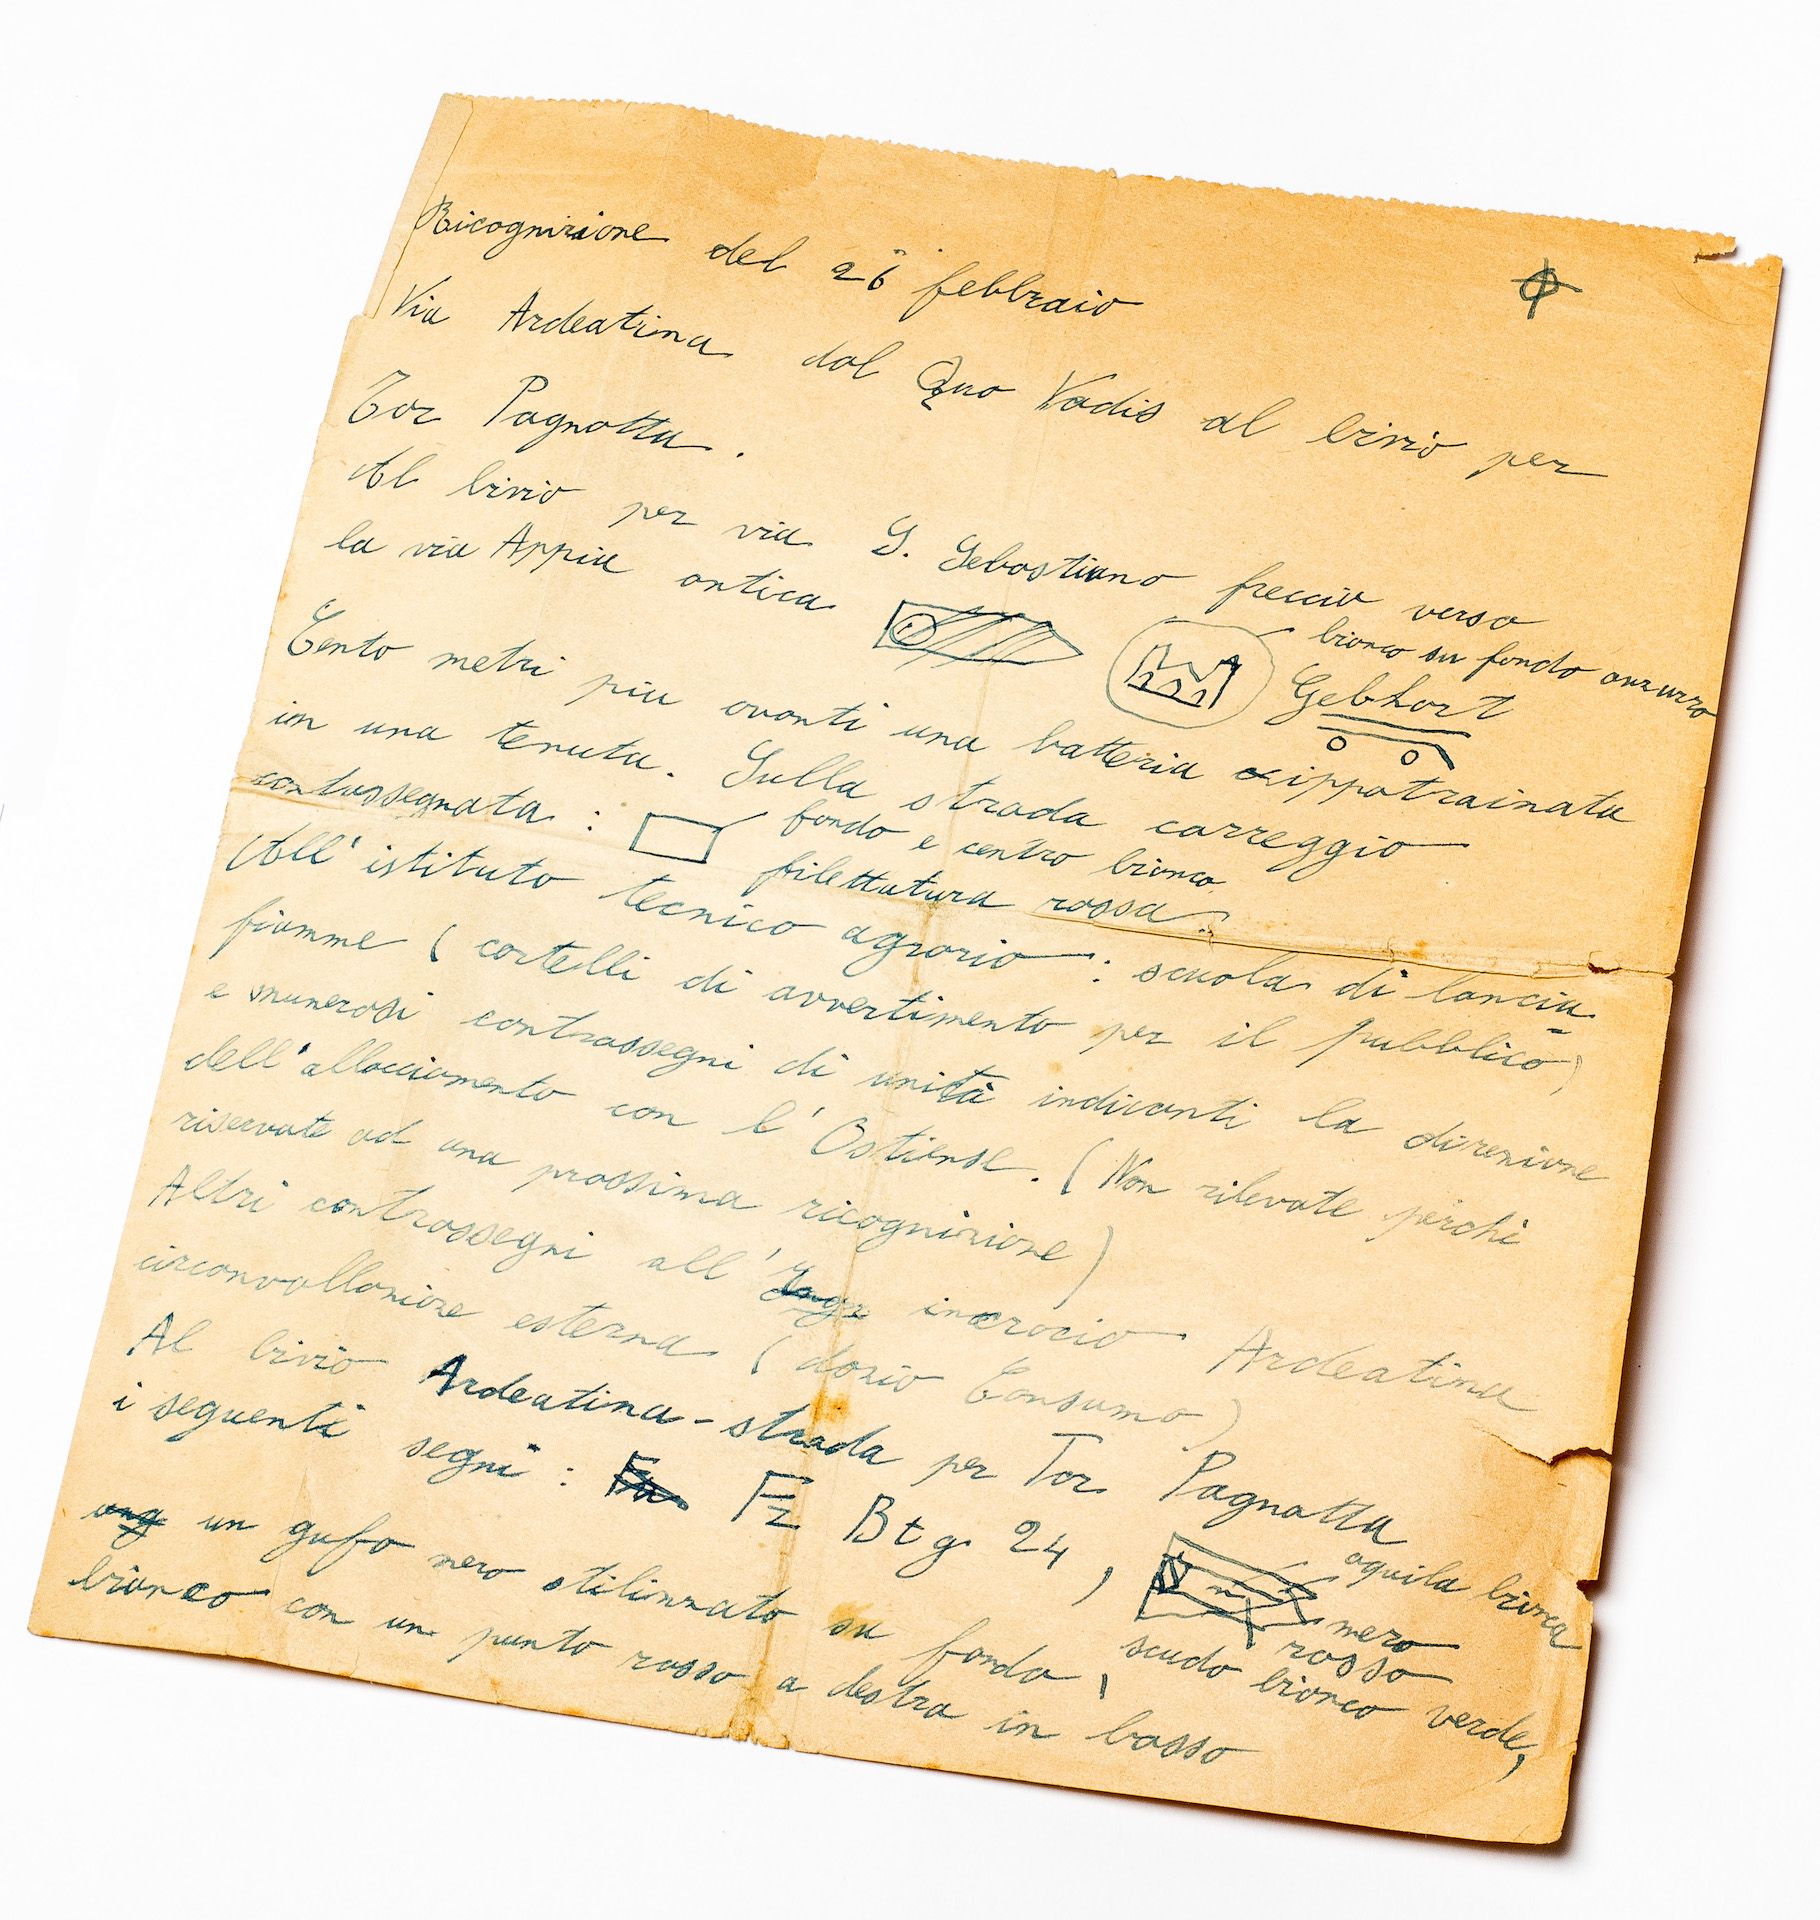 Ricognizione del 26 febbraio
Via Ardeatina dal Quo Vadis al bivio per
Tor Pagnatta.
Al bivio per via S. Sebastiano freccia verso
la via Appia antica
bianco su fondo azzurro
Gebhart
Cento metri più avanti una batteria ippotrainata
in una tenuta. Sulla strada carreggio
contassegnata : fondo e centro bianco
filettatura rossa.
All'istituto tecnico agrario : scuola di lancia=
fiamme (cartelli di avvertimento per il pubblico)
e numerosi contrassegni di unità indicanti la direzione
dell'allacciamento con l'Ostiense. (Non rilevate perchè
riservate ad una prossima ricognizione)
Altri contrassegni all' incrocio Ardeatina
circonvallazione esterna (dazio Consumo)
Al bivio Ardeatina-strada per Tor Pagnatta
i seguenti segni : Fz Btg 24,
aquila bianca
nero
rosso
un gufo nero stilizzato su fondo, scudo bianco verde,
bianco con un punto rosso a destra in basso